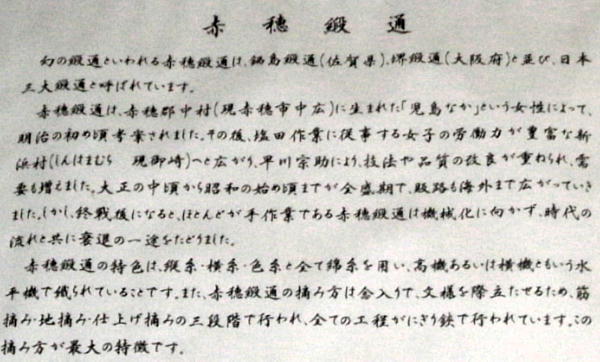 赤穂緞通
幻の緞通といわれる赤穂緞通は、鍋島緞通(佐賀県)、堺緞通(大阪府)と並び、日本
三大緞通と呼ばれています。
赤穂緞通は、赤穂郡中村(現赤穂市中広)に生まれた「児島なか」という女性によって、
明治の初め頃考案されました。その後、塩田作業に従事する女子の労働力が豊富な新
浜村(しんはまむら 現御崎)へと広がり、早川宗助により、技法や品質の改良が重ねられ、需
要も増えました。大正の中頃から昭和の始め頃までが全盛期で、販路も海外まで広がっていき
ました。しかし、終戦後になると、ほとんどが手作業である赤穂緞通は機械化に向かず、時代の
流れと共に衰退の一途をたどりました。
赤穂緞通の特色は、縦糸・横糸・色糸と全て綿糸を用い、高機あるいは横機ともいう水
平機で織られていることです。また、赤穂緞通の摘み方は念入りで、文様を際立たせるため、筋
摘み・地摘み・仕上げ摘みの三段階で行われ、全ての工程がにぎり鋏で行われています。この
摘み方が最大の特徴です。